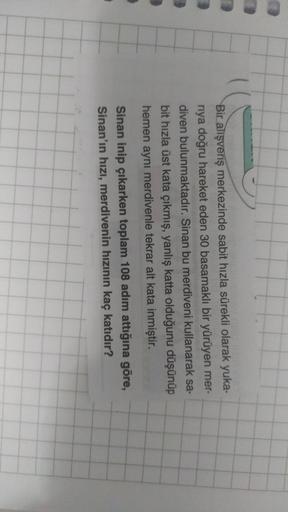 Bir alışveriş merkezinde sabit hızla sürekli olarak yuka-
rıya doğru hareket eden 30 basamaklı bir yürüyen mer-
diven bulunmaktadır. Sinan bu merdiveni kullanarak sa-
bit hızla üst kata çıkmış, yanlış katta olduğunu düşünüp
hemen aynı merdivenle tekrar alt kata inmiştir.
Sinan inip çıkarken toplam 108 adım attığına göre,
Sinan'ın hızı, merdivenin hızının kaç katıdır?